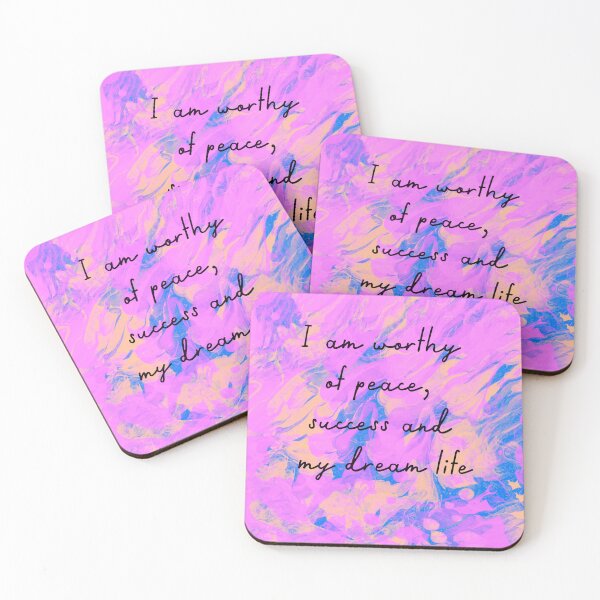 I am worthy
of peace,
success and
my dream life
I am worthy
of peace,
success and
my dream life
I am worthy
of peace,
success and
my dream
I am worthy
of peace,
success and
my dream life